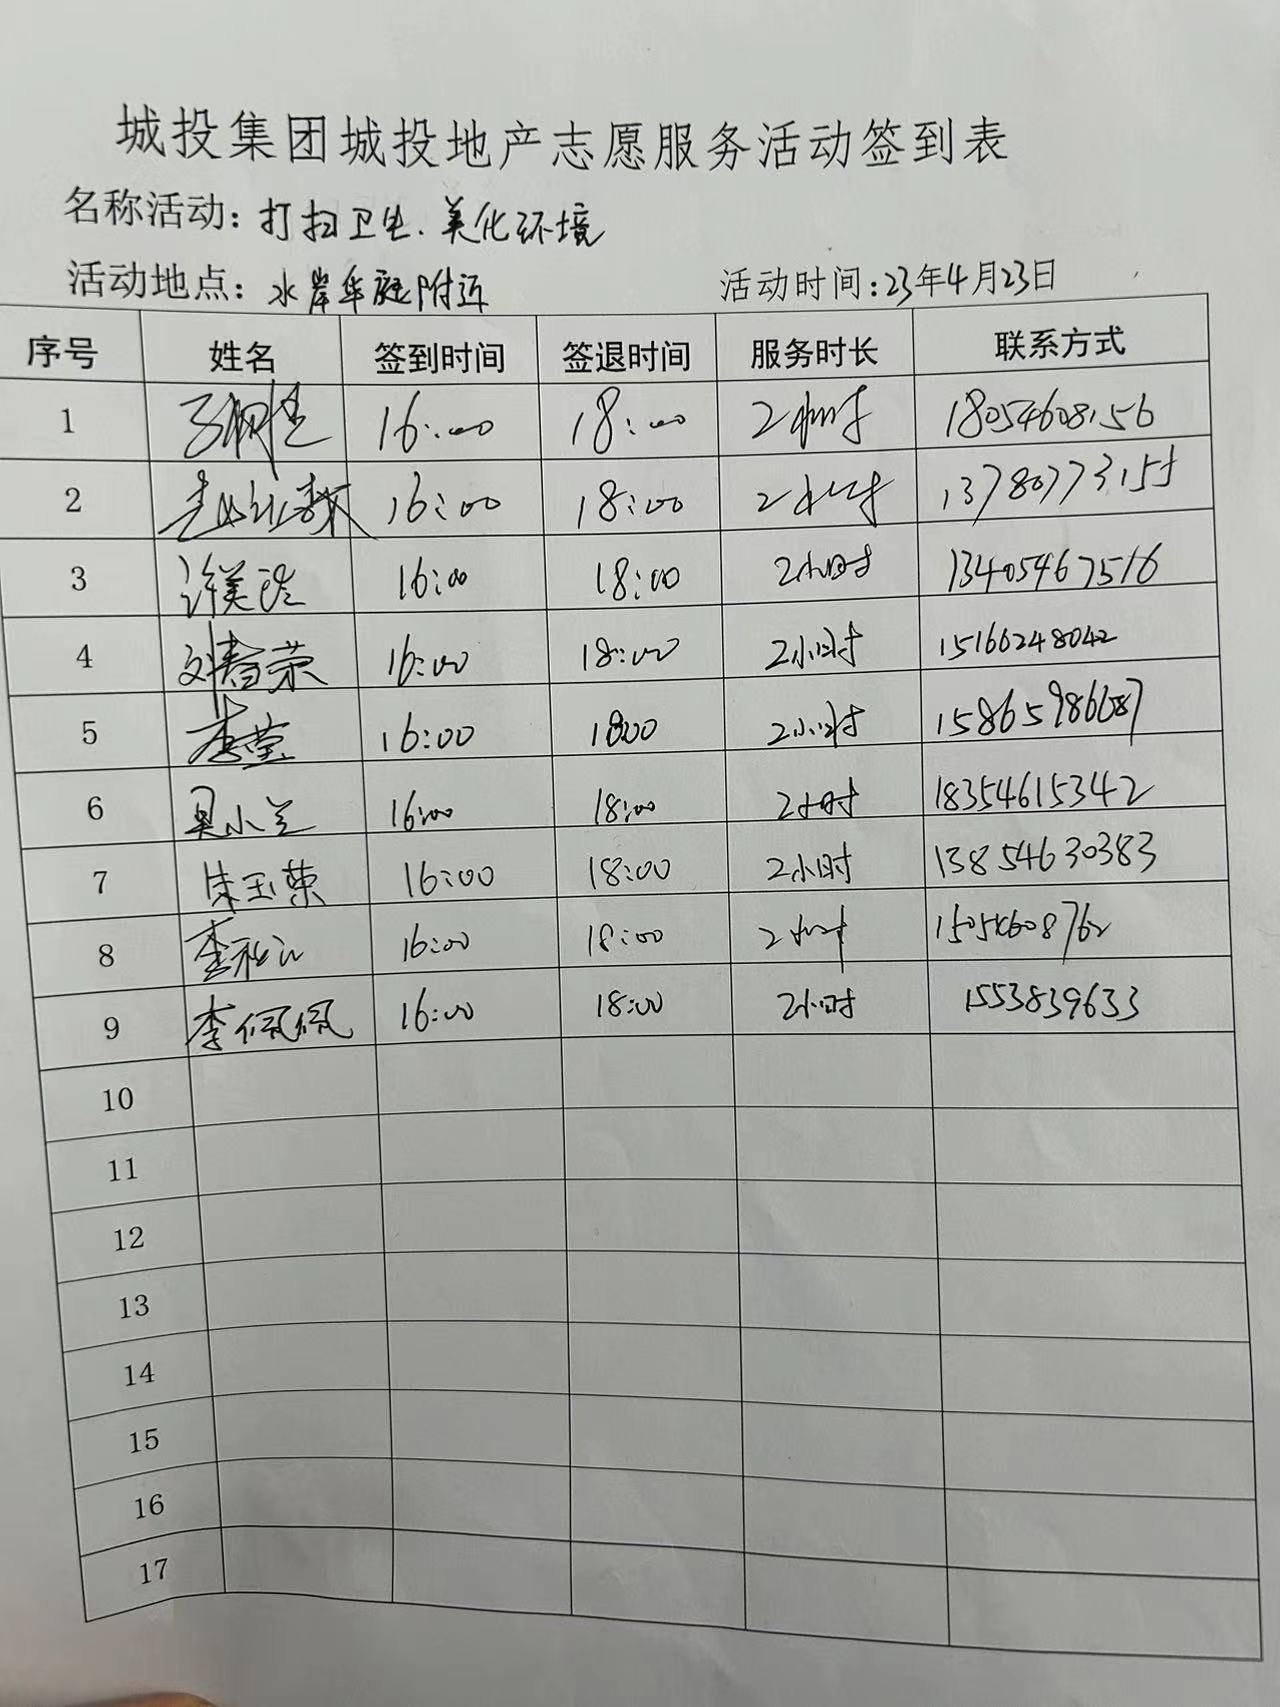 城投集团城投地产志愿服务活动签到表
名称活动：打扫卫生、美化环境
活动地点：水岸华庭附近 活动时间：23年4月23日
序号 姓名 签到时间 签退时间 服务时长 联系方式
1 16:00 18:00 2小时 18054608156
2 16:00 18:00 2小时 13780773155
3 许美 16:00 18:00 2小时 13405467516
4 刘春荣 16:00 18:00 2小时 15166248042
5 李莹 16:00 1800 2小时 15865986687
6 吴小兰 16:00 18:00 2小时 18354615342
7 朱玉荣 16:00 18:00 2小时 13854630383
8 李秋江 16:00 18:00 2小时 15054608762
9 李佩佩 16:00 18:00 2小时 1553839633
10
11
12
13
14
15
16
17